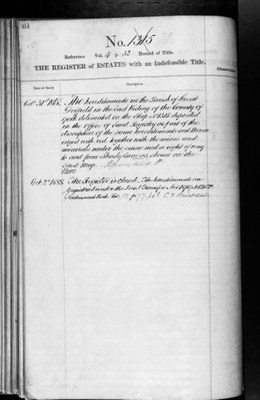 No. 1315
Reference Vol. 4 p. 32 Record of Title.
THE REGISTER of ESTATES with an Indefeasible Title.
Date of Entry
Description
The hereditaments in the Parish of Great
Driffield in the East Riding of the County of
York delineated on the Map No 1315 deposited
in the office of Land Registry as part of the
description of the same hereditaments and thereon
edged with red together with the mines and
minerals under the same and a right of way
to and from Shady Lane as shown on the
said Map.
Oct 2nd 1888. The Register is closed. The hereditaments are
registered under the Land Transfer Act